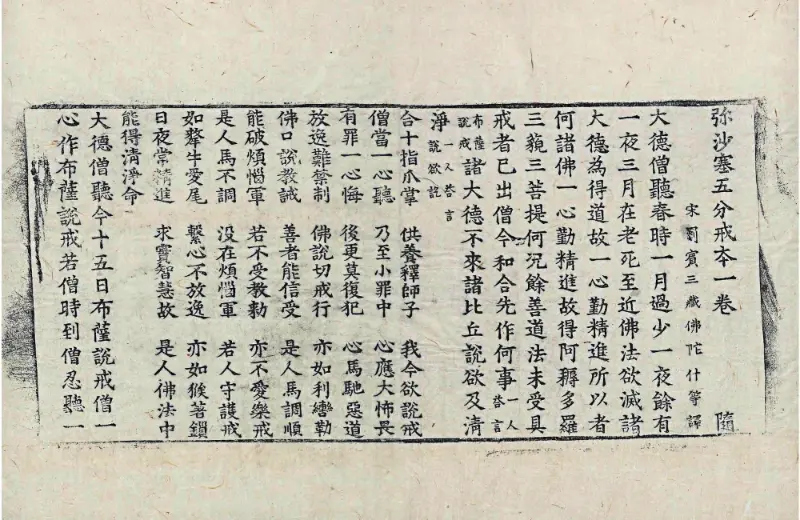 弥沙塞五分戒夲一卷 隨
宋罽賓三藏佛陀什等譯
大德僧聽春時一月過少一夜餘有
一夜三月在老死至近佛法欲滅諸
大德為得道故一心勤精進所以者
何諸佛一心勤精進故得阿耨多羅
三藐三菩提何況餘善道法未受具
戒者已出僧今和合先作何事一人荅言
布薩說戒諸大德不來諸比丘說欲及清
淨一人荅言說欲訖
合十指爪掌 供養釋師子 我今欲說戒
僧當一心聽 乃至小罪中 心應大怖畏
有罪一心悔 後更莫復犯 心馬馳惡道
放逸難禁制 佛說切戒行 亦如利轡勒
佛口說教誡 善者能信受 是人馬調順
能破煩惱軍 若不受教勑 亦不愛樂戒
是人馬不調 没在煩惱軍 若人守護戒
如犛牛愛尾 繫心不放逸 亦如猴著鎖
日夜常精進 求實智慧故 是人佛法中
能得清淨命
大德僧聽今十五日布薩說戒僧一
心作布薩說戒若僧時到僧忍聽一